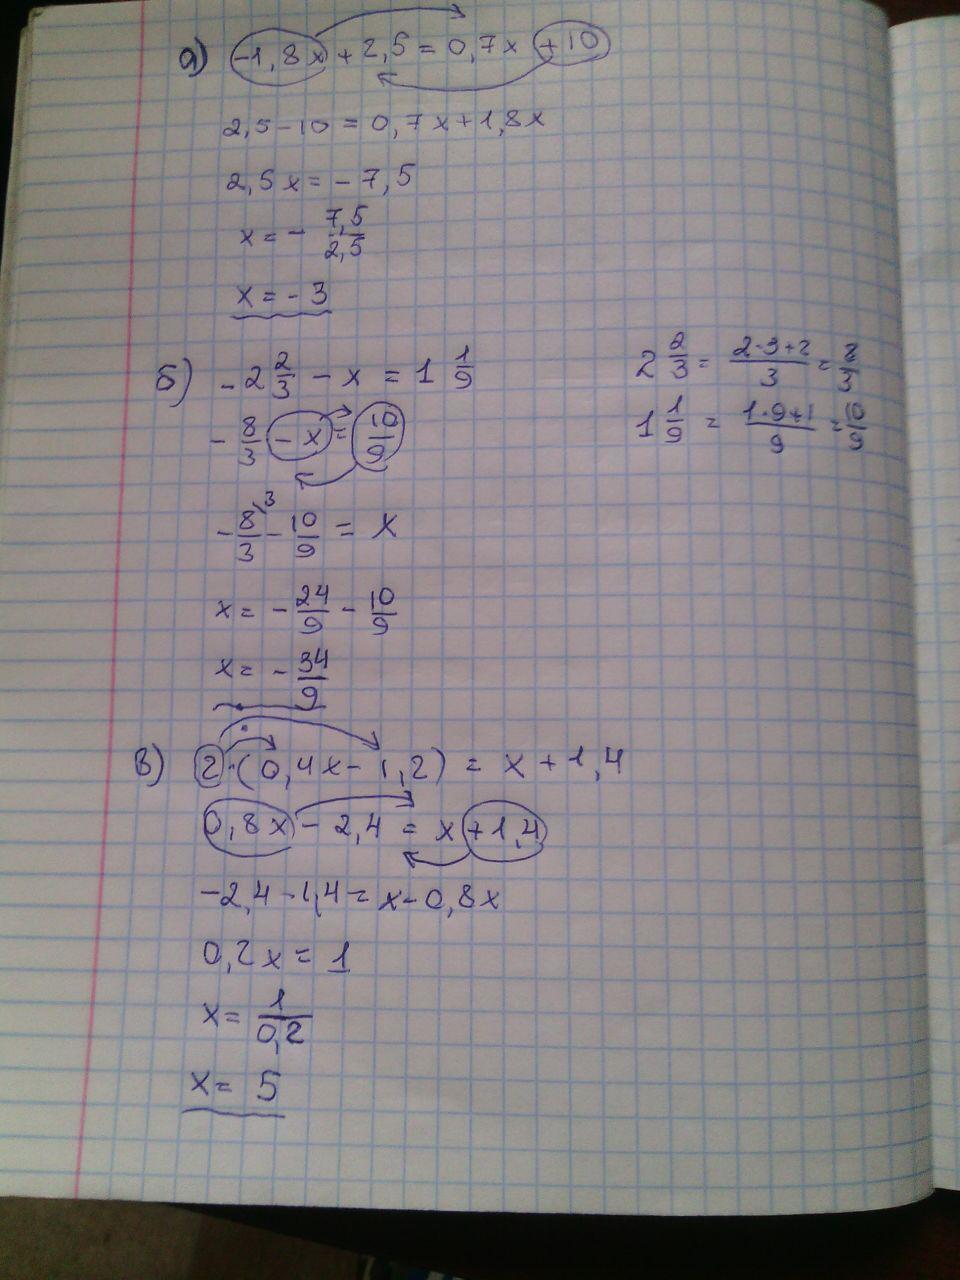 а) -1,8x + 2,5 = 0,7x + 10
2,5 - 10 = 0,7x + 1,8x
2,5x = - 7,5
x = - 7,5/2,5
x = - 3
б) - 2 2/3 - x = 1 1/9
2 2/3 = (2·3+2)/3 = 8/3
- 8/3 - x = 10/9
1 1/9 = (1·9+1)/9 = 10/9
- 8/3 \3 - 10/9 = x
x = - 24/9 - 10/9
x = - 34/9
в) 2·(0,4x - 1,2) = x + 1,4
0,8x - 2,4 = x + 1,4
-2,4 - 1,4 = x - 0,8x
0,2x = 1
x = 1/0,2
x = 5